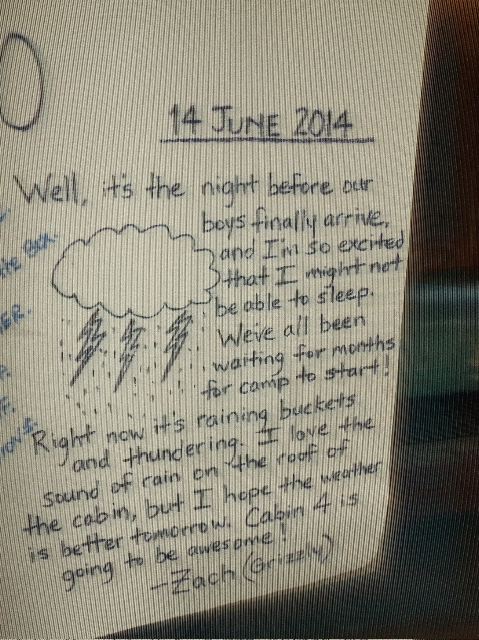 14 JUNE 2014
Well, it's the night before our
boys finally arrive,
and I'm so excited
that I might not
be able to sleep.
We've all been
waiting for months
for camp to start!
Right now it's raining buckets
and thundering. I love the
sound of rain on the roof of
the cabin, but I hope the weather
is better tomorrow. Cabin 4 is
going to be awesome!
-Zach (Grizzly)